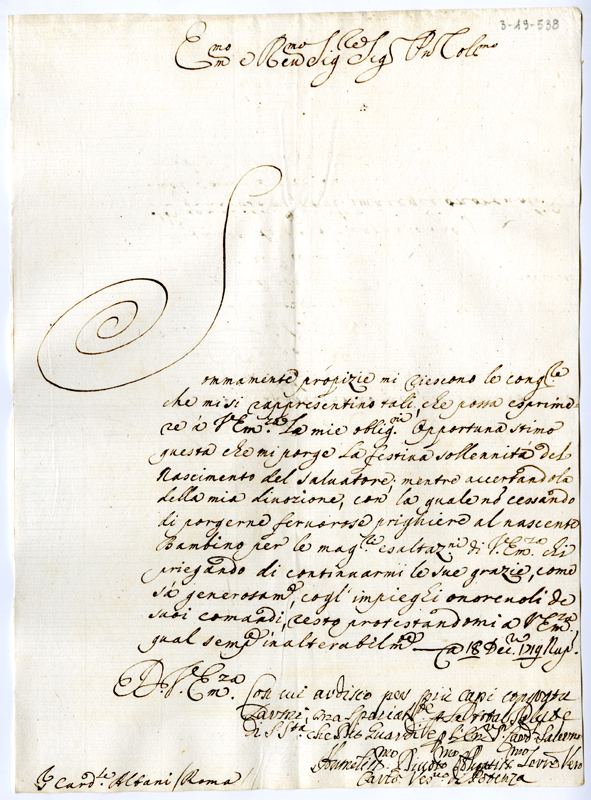 3-19-538
E.mo e Rev.mo Sig.re Sig.
Sommamente propizie mi riescono le cong.re
che mi si rappresentino tali, che possa esprime-
re à V. Em.za La mie oblig.ni Opportuna stimo
questa che mi porge La festiva sollennità del
Nascimento del Salvatore, mentre accertandola
della mia divozione, con la quale nõ cessando
di porgerne fervorose prighiere al nascente
Bambino per le mag.re esaltaz.ni di V. Em.za chi
priegando di continuarmi le sue grazie, come
sà generosam.e, cogl' impieghi onorevoli de
suoi comandi, resto protestandomi a V. Em.za
qual semp.e inalterabilm.e 18 Dec.re 1719
D. V. Em.za Con cui ardisco per più capi
di S. S.tà che Dio guardi Salerno
Servo Vero
Carlo Ves.vo di Potenza
Card.le Albani / Roma